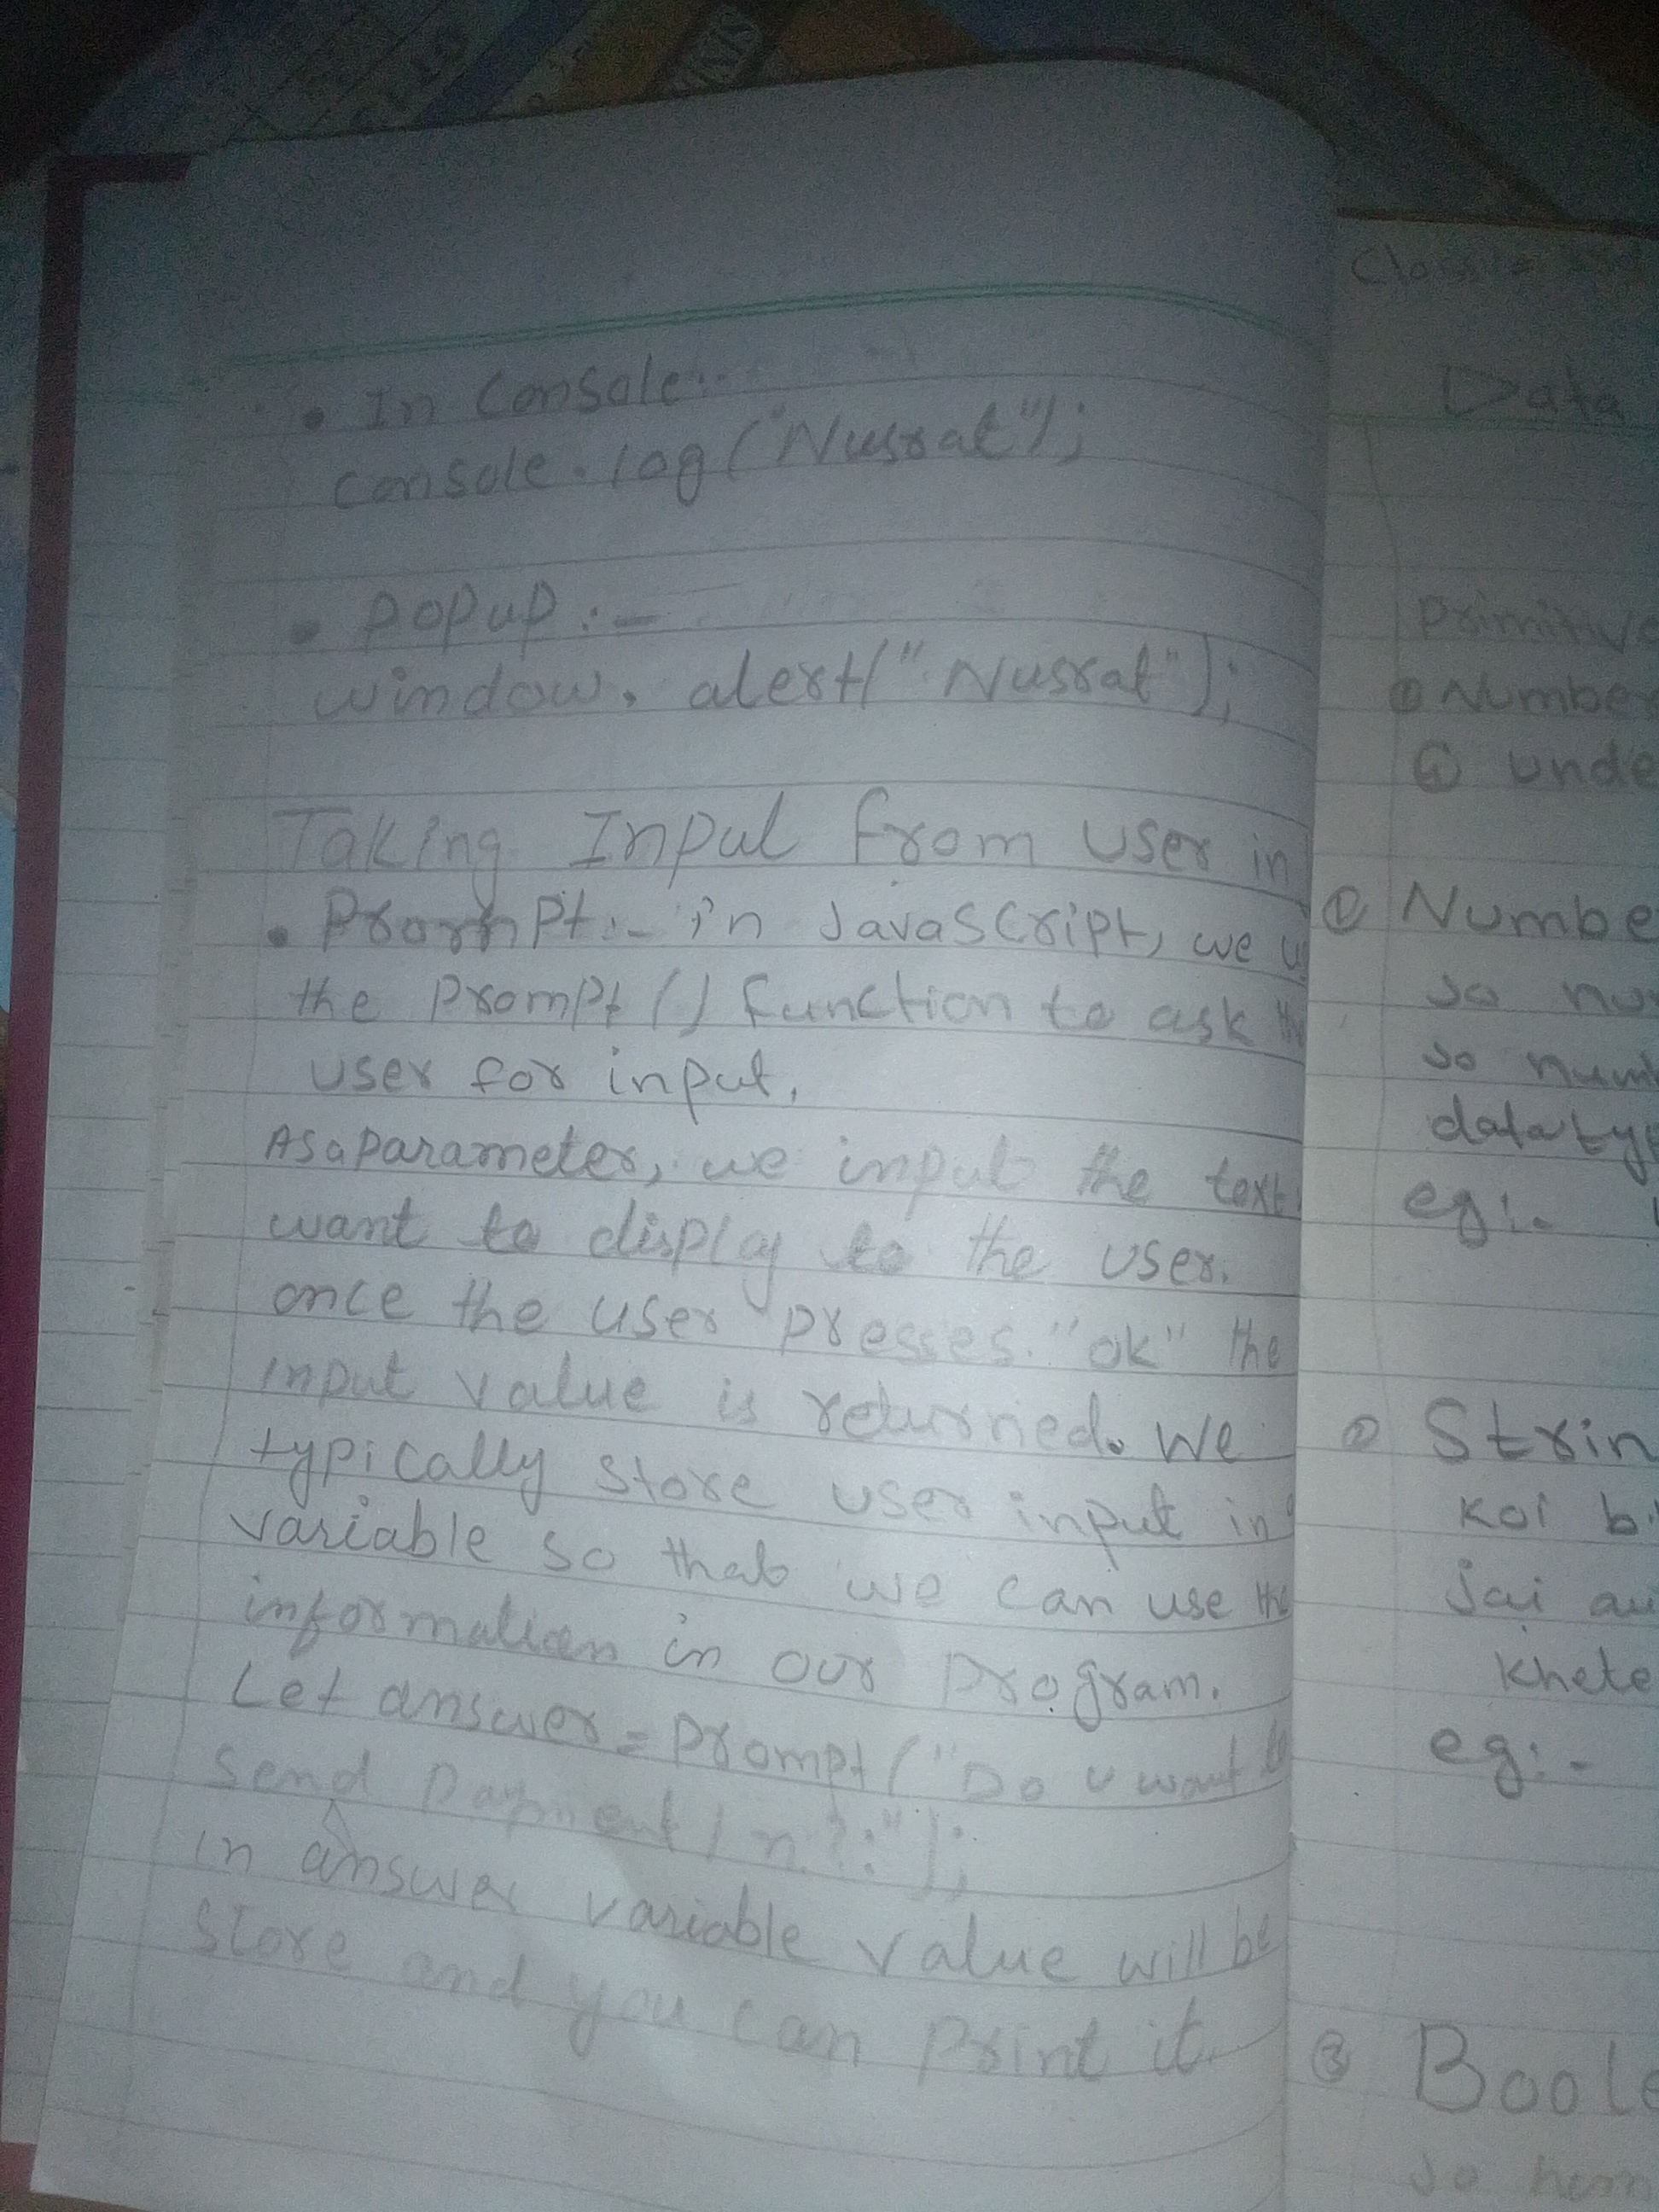 • In Console:-
console.log("Nusrat");
• Popup :-
window. alert("Nusrat");
Taking Input from user in
• Prompt:- in JavaScript, we us
the prompt() function to ask the
user for input.
As a parameter, we input the text
want to display to the user.
once the user presses "ok" the
input value is returned. We
typically store user input in
variable so that we can use the
information in our program.
Let answer = prompt("Do u want to
send Payment / n?:");
in answer variable value will be
store and you can print it.
Class
Data
Primitive
① Number
④ unde
① Numbe
so nu
so num
dataty
eg:-
② Strin
Koi b
jai au
khete
eg:-
③ Boole